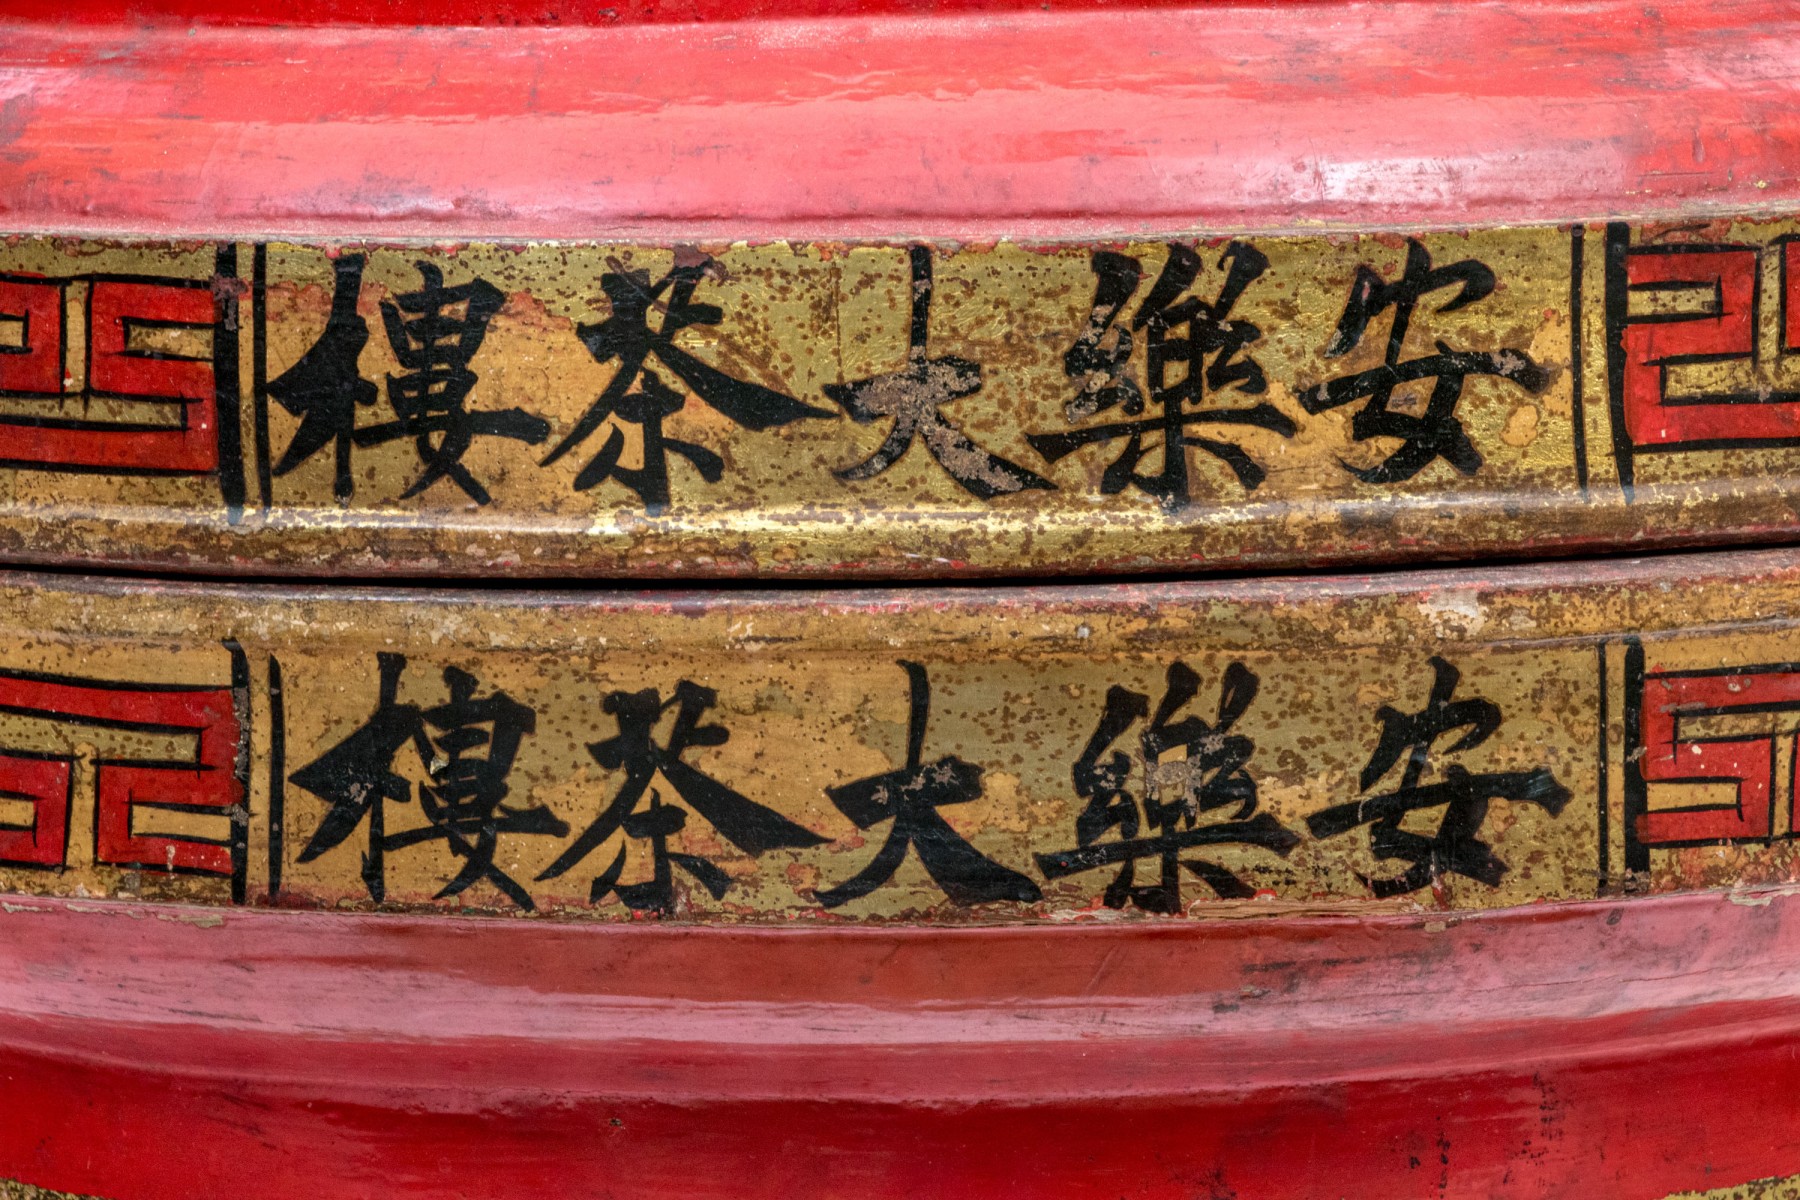 安樂大茶樓
安樂大茶樓